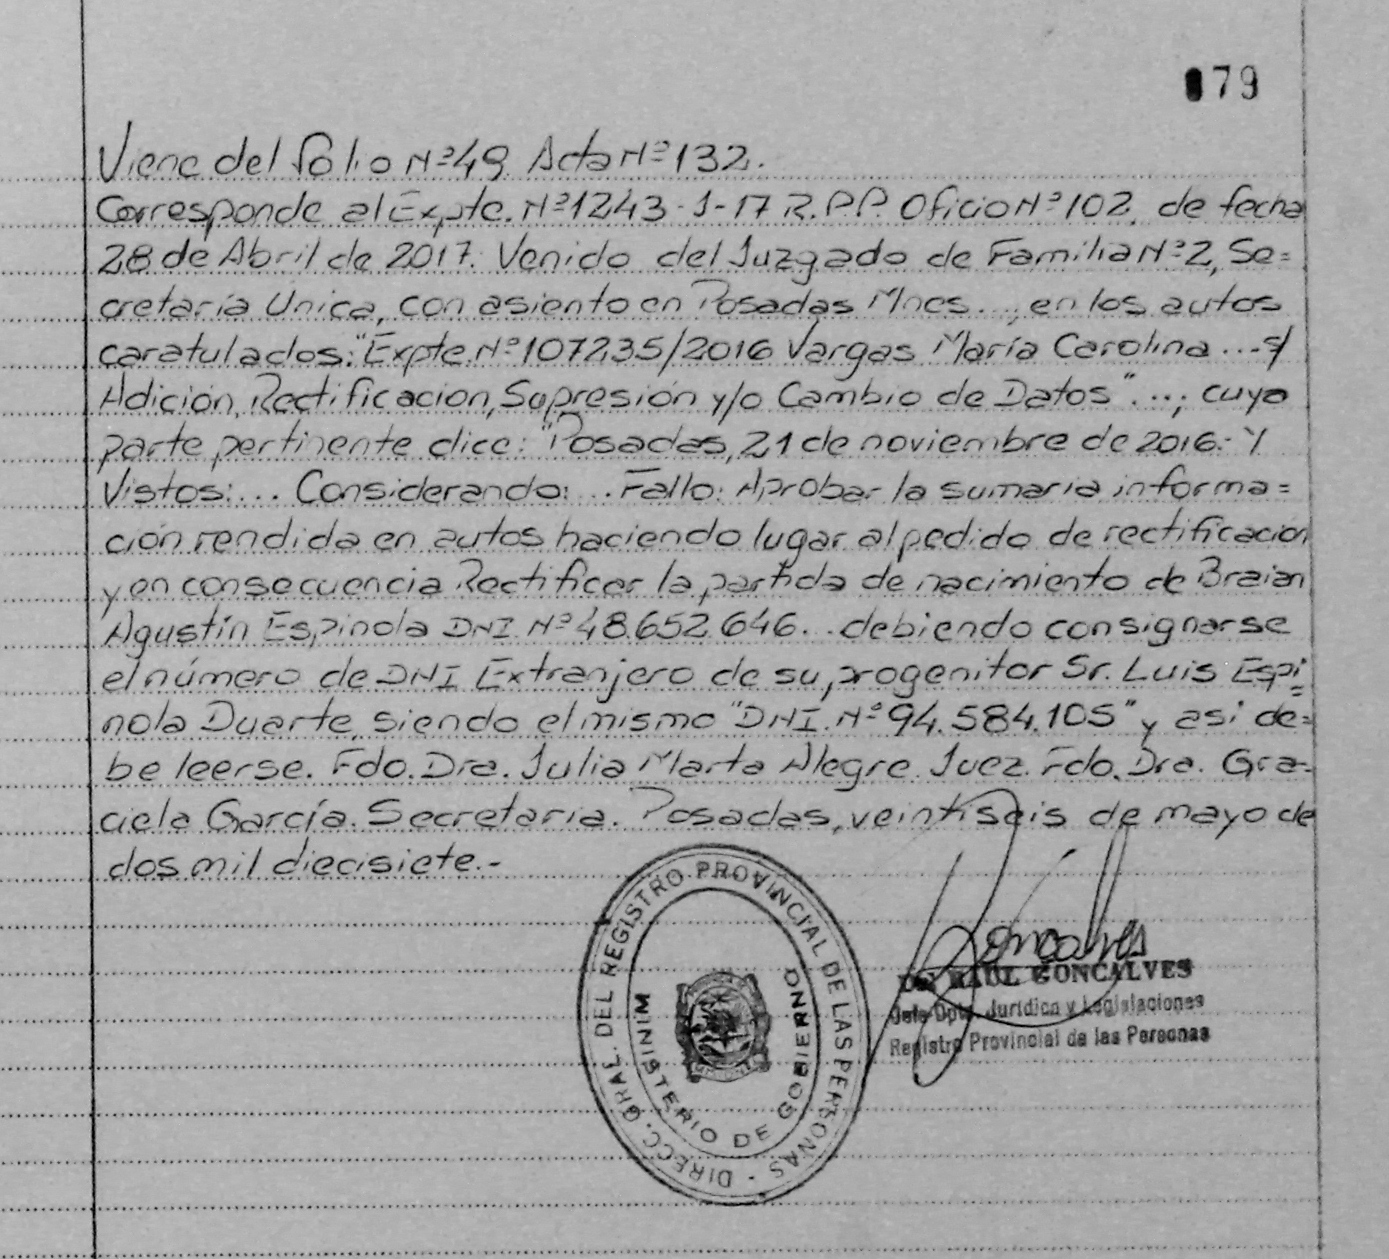 079
Viene del folio Nº 49. Acta Nº 132.
Corresponde al Expte. Nº 1243-J-17 R.P.P. Oficio Nº 102, de fecha
28 de Abril de 2017. Venido del Juzgado de Familia Nº 2, Se=
cretaría Unica, con asiento en Posadas Mnes...; en los autos
caratulados: "Expte. Nº 107235/2016 Vargas María Carolina ... s/
Adición, Rectificación, Supresión y/o Cambio de Datos"...; cuya
parte pertinente dice: "Posadas, 21 de noviembre de 2016.- Y
Vistos:... Considerando:... Fallo: Aprobar la sumaria informa=
ción rendida en autos haciendo lugar al pedido de rectificación
y en consecuencia Rectificar la partida de nacimiento de Braian
Agustín Espinola DNI. Nº 48.652.646... debiendo consignarse
el número de DNI Extranjero de su progenitor Sr. Luis Espi=
nola Duarte, siendo el mismo "DNI. Nº 94.584.105" y así de=
be leerse. Fdo. Dra. Julia Marta Alegre. Juez. Fdo. Dra. Gra=
ciela García. Secretaria. Posadas, veintiseis de mayo de
dos mil diecisiete.-
DIRECC. GRAL. DEL REGISTRO PROVINCIAL DE LAS PERSONAS -
MINISTERIO DE GOBIERNO
Goncalves
Dr. RAUL GONCALVES
Jefe Dpto. Jurídico y Legislaciones
Registro Provincial de las Personas